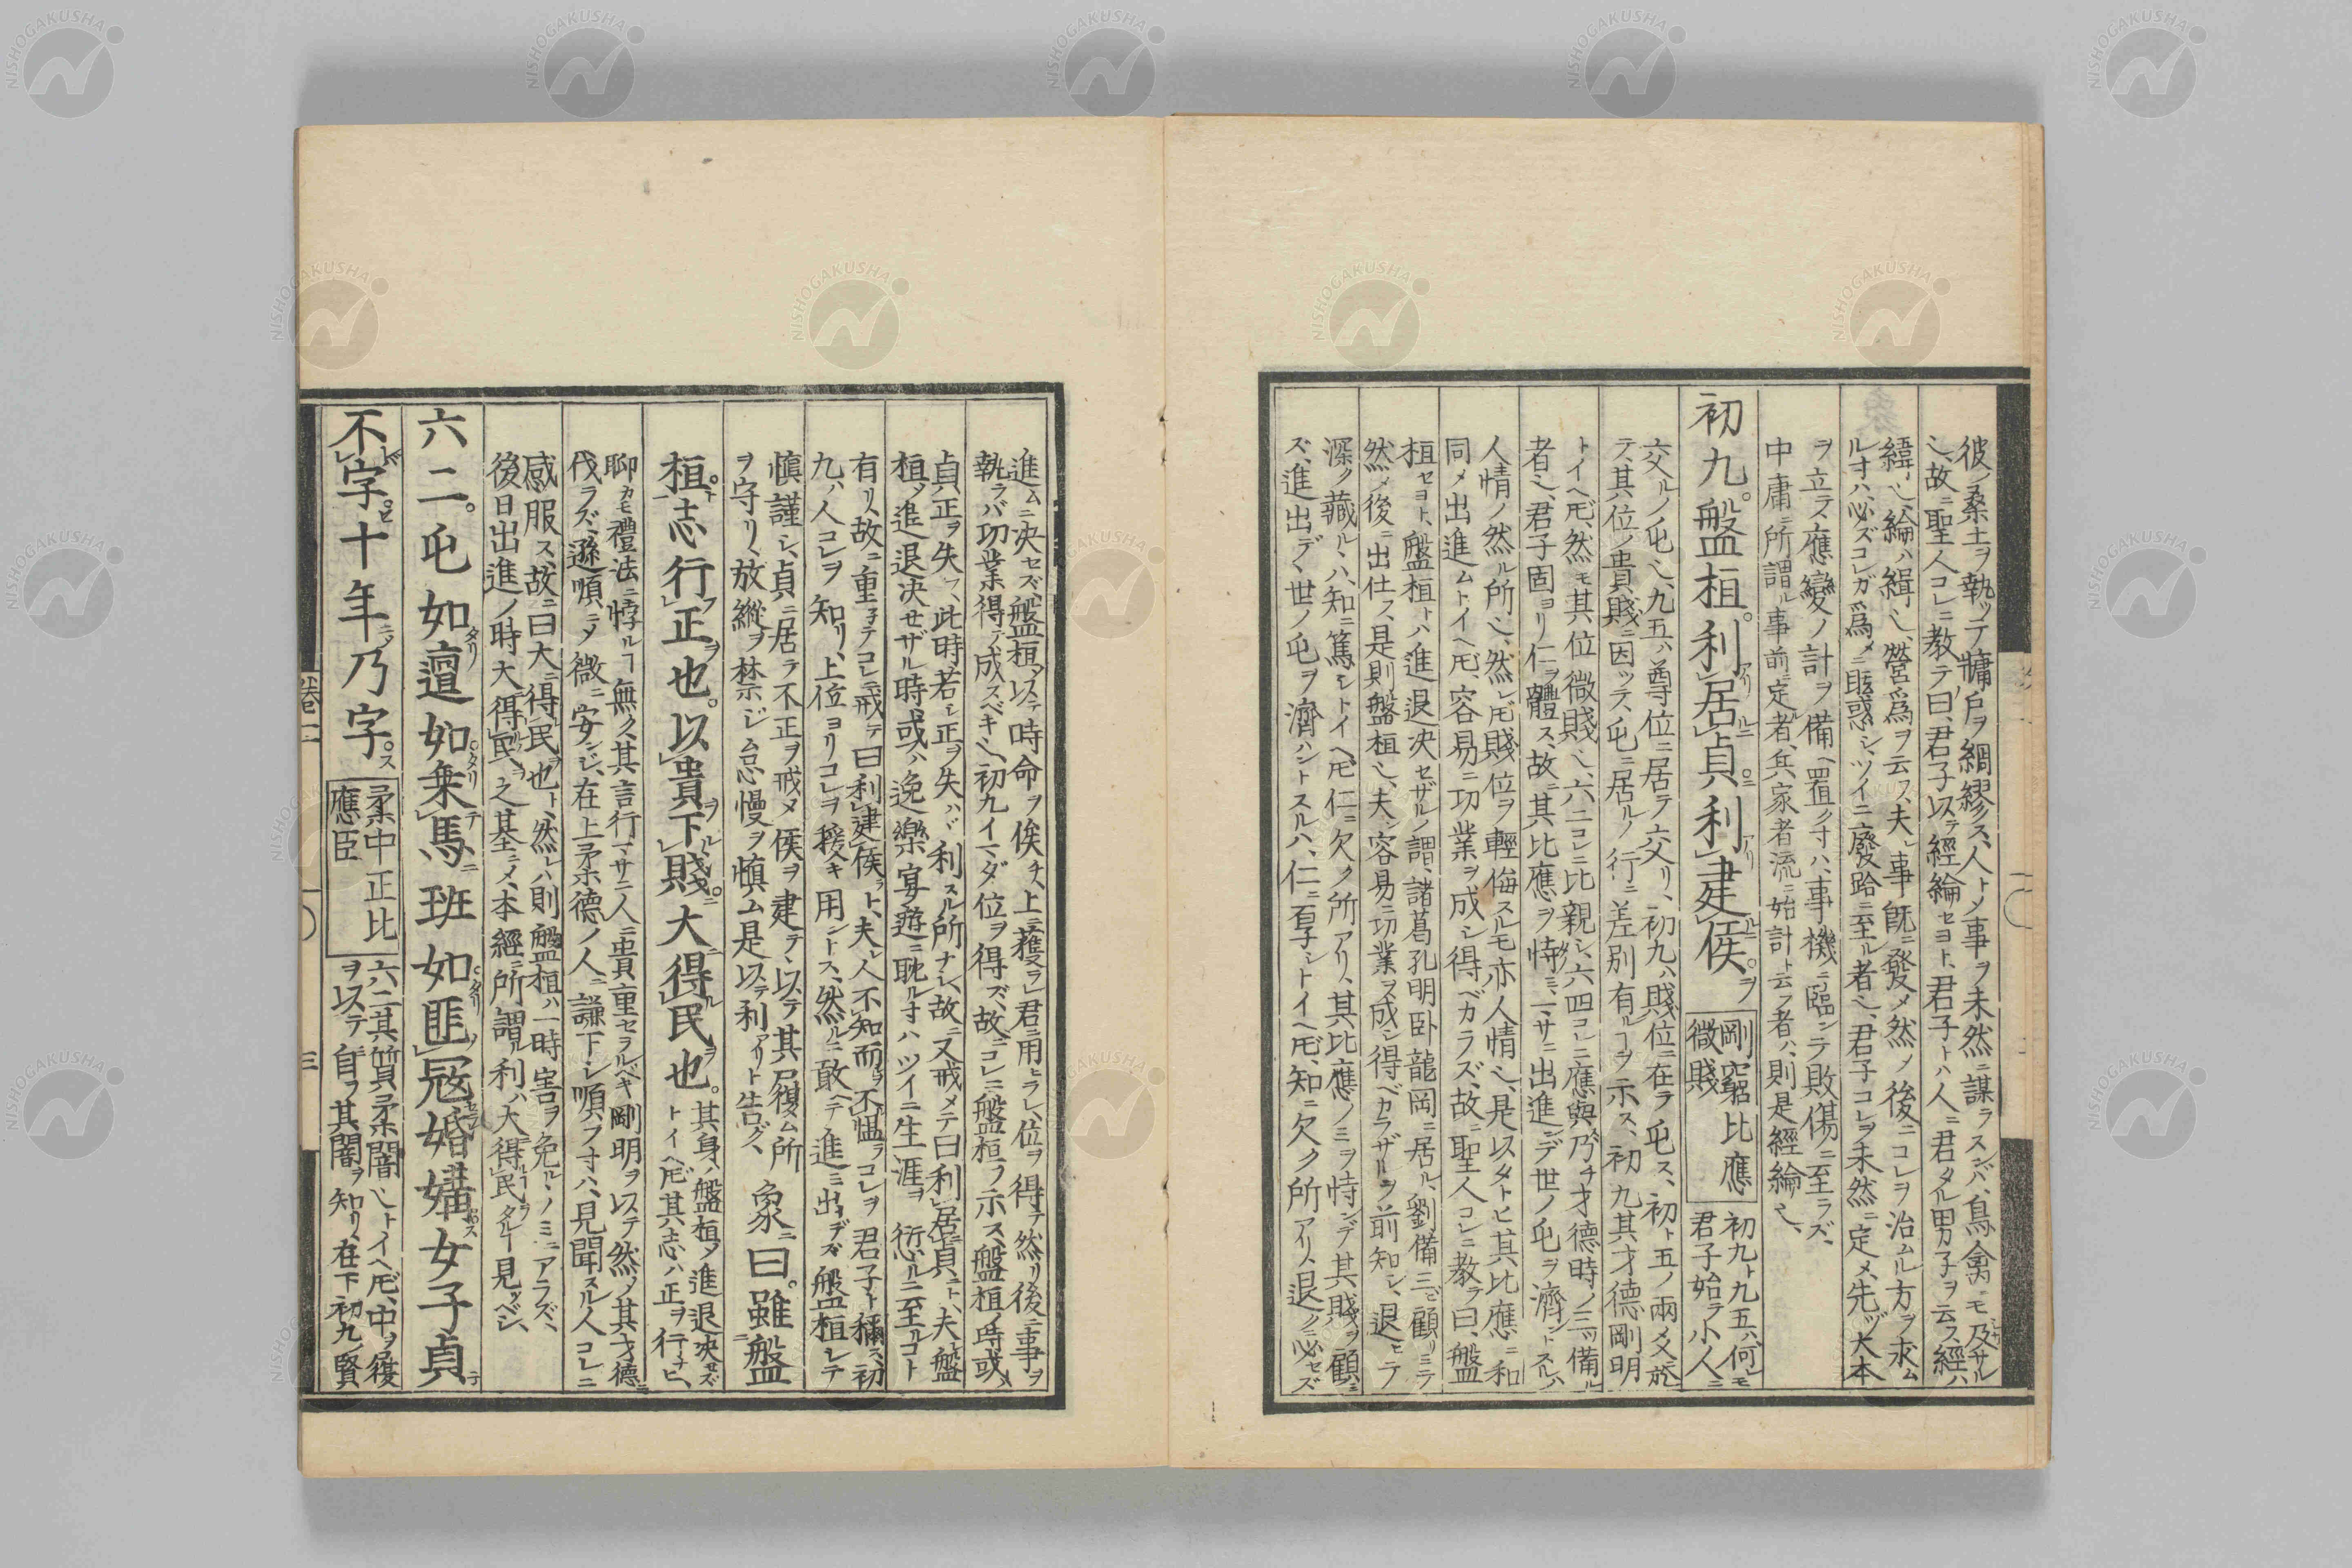 彼ノ桑土ヲ執ッテ牗戸ヲ綢繆ス、人トメ事ヲ未然ニ謀ラズンバ、鳥禽ニモ及ザル
也、故ニ聖人コレニ教テ曰、君子以テ經綸セヨト、君子トハ人ニ君タル男子ヲ云ス、經ハ
緯也、綸ハ緝也、營爲ヲ云ス、夫レ事既ニ發メ然ノ後ニコレヲ治ムル方ヲ求ム
ルオハ、必ズコレガ爲メニ眩惑シツイニ廢路ニ至ル者也、君子コレヲ未然ニ定メ、先ヅ大本
ヲ立テ、應變ノ計ヲ備ヘ置クオハ、事機ニ臨ンテ敗傷ニ至ラズ、
中庸ニ所謂ル事前ニ定ル者、兵家者流ニ始計ト云フ者ハ、則是經綸也、
初九。盤桓。利居貞利建侯。
剛窮比應
微賤
初九ト九五ハ、何レモ
君子始ラ小人ニ
交ルノ屯也、九五ハ尊位ニ居テ交リ、初九ハ賤位ニ在ラ屯ス、初ト五ノ兩爻於
テ、其位ノ貴賤ニ因ッテ、屯ニ居ルノ行ニ差別有ルヿヲ示ス、初九其才德剛明
トイヘ𪜈、然モ其位微賤也、六二コレニ比親シ、六四コレニ應與ス、乃チ才德時ノ三ツ備ル
者也、君子固ヨリ仁ヲ體ス、故ニ其比應ヲ恃ミ、一サニ出進ンデ世ノ屯ヲ濟ントスルハ
人情ノ然ル所也、然レ𪜈賤位ヲ輕侮スルモ亦人情也、是以タトヒ其比應ニ和
同メ出進ムトイヘ𪜈、容易ニ功業ヲ成シ得ベカラズ、故ニ聖人コレニ教テ曰、盤
桓セヨト、盤桓トハ進退决セザルノ謂、諸葛孔明卧龍岡ニ居ル、劉備三ビ顧ミテ
然メ後ニ出仕ス、是則盤桓也、夫レ容易ニ功業ヲ成シ得ベカラザルヲ前知シ、退ヒテ
深ク藏ルハ、知ニ篤シトイヘ𪜈仁ニ欠ク所アリ、其比應ノミヲ恃ンデ其賤ヲ顧ミ
ズ、進出デヽ世ノ屯ヲ濟ハントスルハ、仁ニ專ラトイヘ𪜈、知ニ欠ク所アリ、退クニ必セズ
進ムニ决セズ、盤桓メ以テ時命ヲ俟チ、上ニ獲ラレ君ニ用ヒラレ、位ヲ得テ然リ後ニ事ヲ
執ラバ功業得テ成スベキ也、初九イマダ位ヲ得ズ、故ニコレニ盤桓ヲ示ス、盤桓ノ時或ハ
貞正ヲ失フ、此時若シ正ヲ失ハバ利スル所ナシ、故ニ又戒メテ曰利居貞ト、夫レ盤
桓メ進退决セザル時、或ハ逸樂宴遊ニ耽ルオハツイニ生涯ヲ愆ルニ至ルコト
有リ、故ニ重子テコレニ戒テ曰利建侯ト、夫レ人不知而不慍コレヲ君子ト稱ス、初
九ハ人コレヲ知リ、上位ヨリコレヲ援キ用ントス、然ルニ敢ヘテ進ミ出デズ盤桓シテ
愼謹シ、貞ニ居テ不正ヲ戒メ侯ヲ建テ、以テ其履ム所
ヲ守リ、放縱ヲ禁ジ怠慢ヲ愼ム是以テ利アリト告グ、
象曰。雖盤
桓。志行正也。以貴下賤。大得民也。
其身ハ盤桓メ進退决セズ
トイヘ𪜈、其志ハ正ヲ行ナヒ、
聊カモ禮法ニ悖ルヿ無ク、其言行マサニ人ニ貴重セラルベキ剛明ヲ以テ然ノ其才德ニ
伐ラズ、遜順ニメ微ニ安ンジ、在上柔德ノ人ニ謙下シ順フオハ、見聞スル人コレニ
感服ス、故ニ曰大ニ得民也ト、然レハ則盤桓ハ一時害ヲ免ルヽノミニアラズ、
後日出進ノ時大得民ヲ之基ニメ、本經ニ所謂ル利ハ大得民タルヿ見ツベシ、
六二。屯如邅如。乘馬班如。匪冦婚媾女子貞
不字。十年乃字。
柔中正比
應臣
六二其質柔闇也トイヘ𪜈、中ヲ履
ヲ以テ自ラ其闇ヲ知リ、在下初九賢
卷二
三